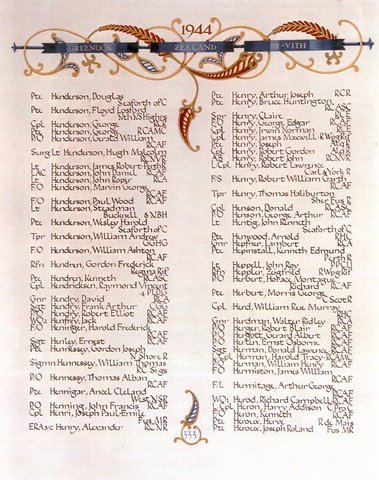 1944
GREENOCK ZEELAND ST-VITH
Pte Henderson, Douglas
Seaforth of C
Pte Henderson, Floyd Losford
Nth NS Highrs
Cpl Henderson, George RCR
Pte Henderson, George RCAMC
WO Henderson, Gerald William
RCAF
Surg Lt Henderson, Hugh Malcolm
RCNVR
Lt Henderson, James Robert RHLI
LAC Henderson, John Daniel RCAF
Lt Henderson, John Roper RCA
F/O Henderson, Marvin George
RCAF
F/O Henderson, Paul Wood RCAF
Lt Henderson, Steadman
Bucknell NNBH
Pte Henderson, Wesley Harold
Seaforth of C
Tpr Henderson, William Andrew
GGHG
F/O Henderson, William Ashton
RCAF
Rfn Hendren, Gordon Frederick
Regina Rif
Pte Hendren, Kenneth ASC
Cpl Hendricksen, Raymond Vincent
4 PLDG
Gnr Hendry, David RCA
Sgt Hendry, Frank Arthur CAC
P/O Hendry, Robert Elliot RCAF
WO2 Henfrey, Jack RCAF
F/O Heninger, Harold Frederick
RCAF
Sgt Henley, Ernest RCAF
Pte Hennessey, Gordon Joseph
N Shore R
Sigmn Hennessey, William Thomas
RC Sigs
P/O Hennessy, Thomas Alban
RCAF
Pte Hennigar, Ancel Cleland
West NSR
P/O Henning, John Francis RCAF
Cpl Henri, Joseph Paul-Emile
Fus MR
ERA5c Henry, Alexander RCNR
Pte Henry, Arthur Joseph RCR
Pte Henry, Bruce Huntington
RCASC
Spr Henry, Claire RCE
P/O Henry, George Edgar RCAF
Cpl Henry, Irwin Norman RCE
Cpl Henry, James Maxwell RWpgRif
Pte Henry, Joseph Alq R
Cpl Henry, Robert Gordon Alq R
AB Henry, Robert John RCNVR
L Cpl Henry, Robert Lawrence
Carl & York R
F/S Henry, Robert William Garth
RCAF
Tpr Henry, Thomas Haliburton
Sher Fus R
Cpl Henson, Donald RCASC
P/O Henson, George Arthur RCAF
Lt Hentig, John Kenneth
Seaforth of C
Pte Henwood, Arnold RHC
Gnr Hepfner, Lambert RCA
Pte Hepinstall, Kenneth Edmund
Perth R
Lt Heppell, John Roy DCLI
Rfn Heppler, Ziegfried RWpg Rif
P/O Herbert, Horace Montague
Richard RCAF
Pte Herbert, Morris George
C Scot R
Cpl Herd, William Rae Murray
RHC
Gnr Herdman, Walter Ridley RCA
P/O Herger, Robert Blair RCAF
P/O Hergott, Gerard Albert RCAF
P/O Herlen, Ernest Osborne RCAF
Sgt Herman, Donald Lawrence RCAF
L Cpl Herman, Harold Tracy RCAMC
P/O Herman, William Henry RCAF
F/O Hermiston, James William
RCAF
F/L Hermitage, Arthur George
RCAF
WO1 Herod, Richard Campbell RCAF
L Cpl Heron, Harry Addison C Pro C
F/O Heron, Kenneth RCAF
Pte Heroux, Herve R de Mais
Pte Heroux, Joseph Roland Fus MR
333